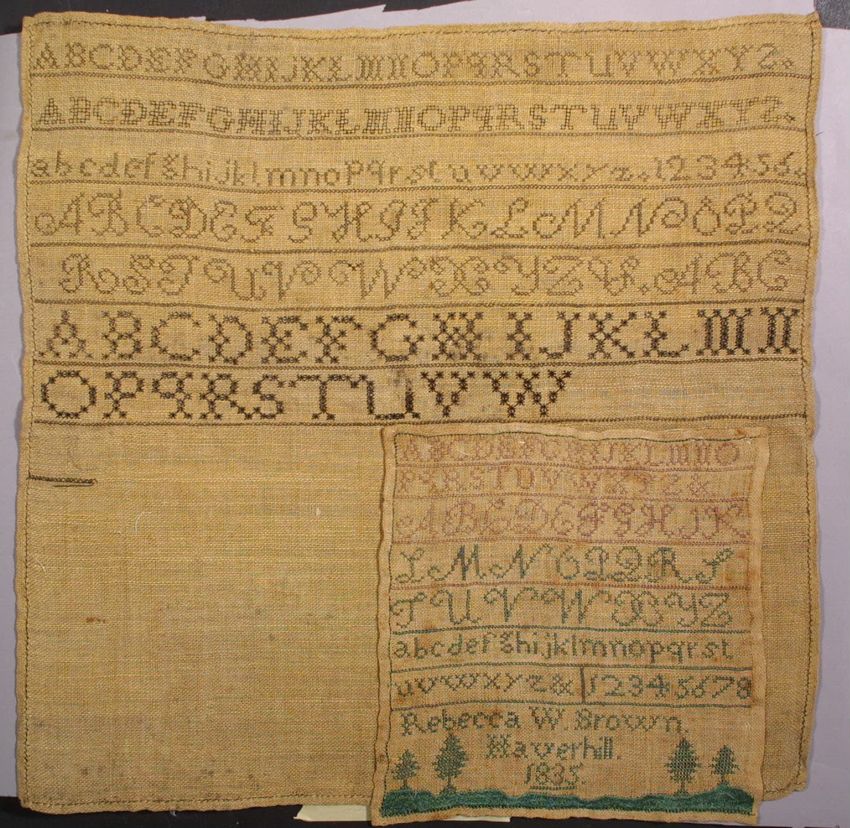 ABCDEFGHIJKLMNOPQRSTUVWXYZ.
ABCDEFGHIJKLMNOPQRSTUVWXYZ.
abcdefghijklmnopqrstuvwxyz.123456.
ABCDEFGHIJKLMNOPQ
RSTUVWXYZ&.ABC
ABCDEFGHIJKLMN
OPQRSTUVW
ABCDEFGHIJKLMNO
PQRSTUVWXYZ&
ABCDEFGHIJK
LMNOPQRS
TUVWXYZ
abcdefghijklmnopqrst
uvwxyz&12345678
Rebecca W. Brown.
Haverhill.
1835.